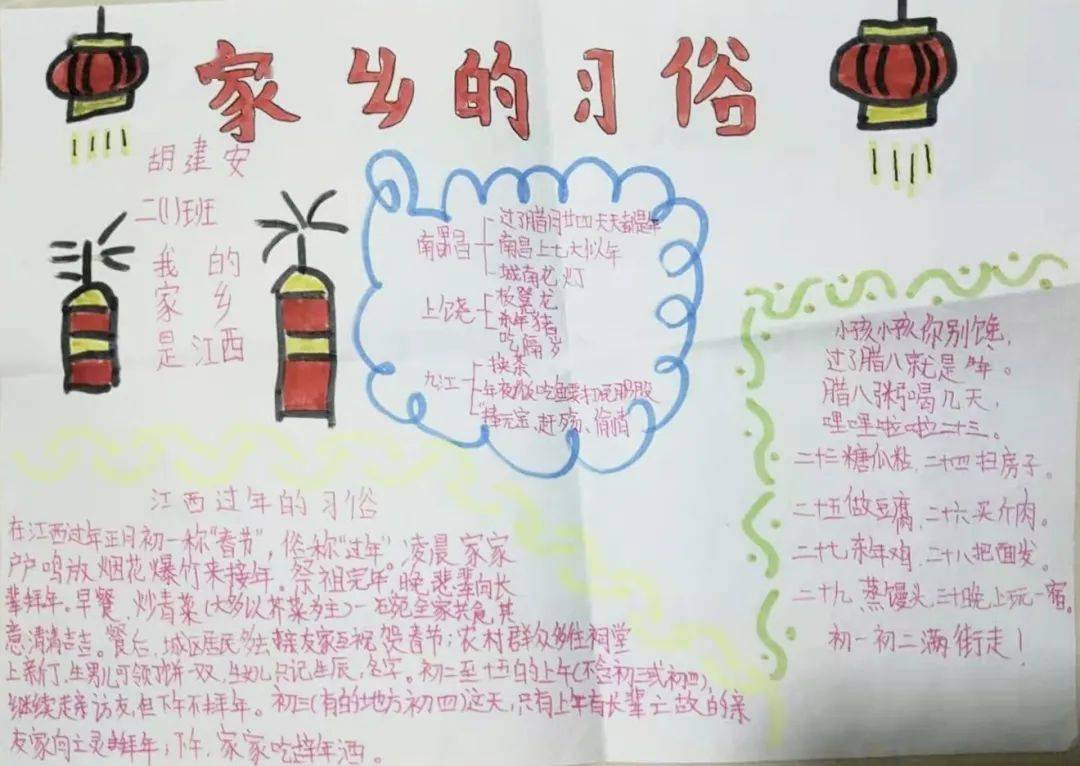 家乡的习俗
胡建安
二(1)班
我的
家乡
是江西
南昌
过了腊月廿四天天都是年
南昌上七大似年
城南龙灯
上饶
板登龙
杀年猪
吃隔岁
九江
换茶
年夜饭吃鱼要打屁股
捧元宝、赶
小孩小孩你别馋,
过了腊八就是年。
腊八粥喝几天,
哩哩啦啦二十三。
二十三糖瓜粘,二十四扫房子。
二十五做豆腐,二十六买斤肉。
二十七杀年鸡,二十八把面发。
二十九蒸馒头,三十晚上玩一宿。
初一初二满街走!
江西过年的习俗
在江西过年正月初一称"春节",俗称"过年"。凌晨家家
户户鸣放烟花爆竹来接年。祭祖完年。晚辈向长
辈拜年。早餐,炒青菜(大多以芥菜为主)一石宛全家共食,其
意清清吉吉。餐后,城区居民多去亲友家互祝贺春节;农村群众多往祠堂
上新丁,生男儿可领丁饼一双,生女儿只记生辰,名字。初二至十五的上午(不含初三或初四),
继续走亲访友,但下午不拜年。初三(有的地方初四)这天,只有上午有长辈亡故的亲
友家向亡灵拜年;下午,家家吃年酒。